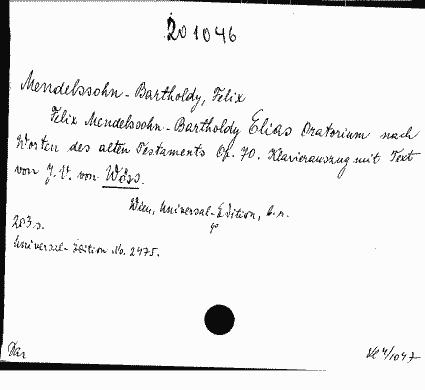 201046
Mendelssohn-Bartholdy, Felix
Felix Mendelssohn-Bartholdy Elias Oratorium nach
Worten des alten Testaments Op. 70. Klavierauszug mit Text
von J. V. von Wöss.
Wien, Universal-Edition, o. n.
4°
203 s.
Universal-Edition No. 2475.
Dar